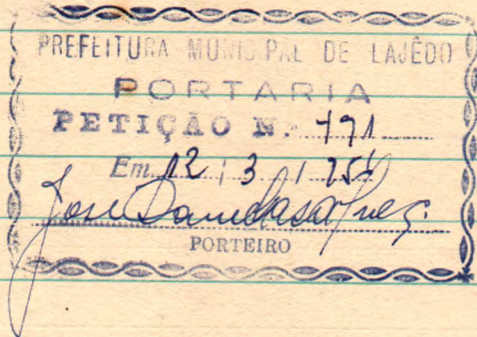 PREFEITURA MUNICIPAL DE LAJÊDO
PORTARIA
PETIÇÃO N.
Em 12 / 3 /
José
PORTEIRO